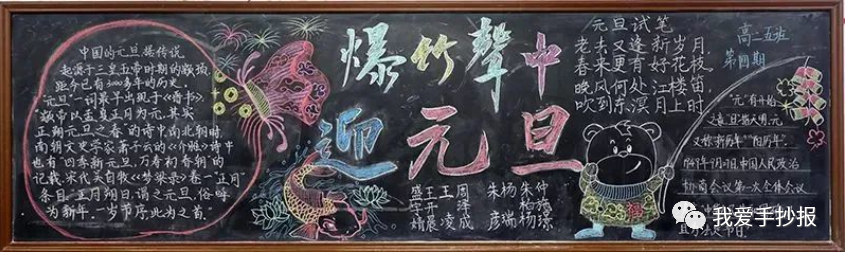 中国的元旦据传说,
起源于三皇五帝时期的颛顼,
距今已有3000多年的历史。
"元旦"一词最早出现于《晋书》:
"颛帝以孟夏正月为元,其实
正朔元旦之春"的诗中南北朝时,
南朝文史学家萧子云的《介雅》诗中
也有"四季新元旦,万寿初春朝"的
记载。宋代吴自牧《梦粱录》卷一"正月"
条目"正月朔日,谓之元旦,俗呼
为新年。一岁节序,此为之首。"
爆竹聲中
迎元旦
元旦试笔
老去又逢新岁月,
春来更有好花枝
晚风何处江楼笛,
吹到东溟月上时
高二五班
第四期
"元"有开始
之意"旦"指天明,元
又称"新历年""阳历年"。
1949年9月27日,中国人民政治
协商会议第一次全体会议
我爱手抄报